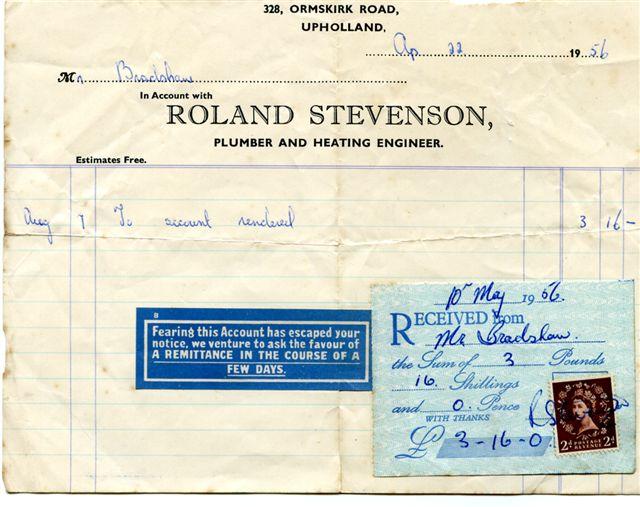 328, ORMSKIRK ROAD,
UPHOLLAND,
Ap 22 1956
Mr. Bradshaw
In Account with
ROLAND STEVENSON,
PLUMBER AND HEATING ENGINEER.
Estimates Free.
Aug 7 To account rendered 3 16 -
B
Fearing this Account has escaped your
notice, we venture to ask the favour of
A REMITTANCE IN THE COURSE OF A
FEW DAYS.
10 May 1956.
RECEIVED from
Mr Bradshaw.
the Sum of 3 Pounds
16. Shillings
and 0. Pence
WITH THANKS
£ 3-16-0
2d POSTAGE REVENUE 2d